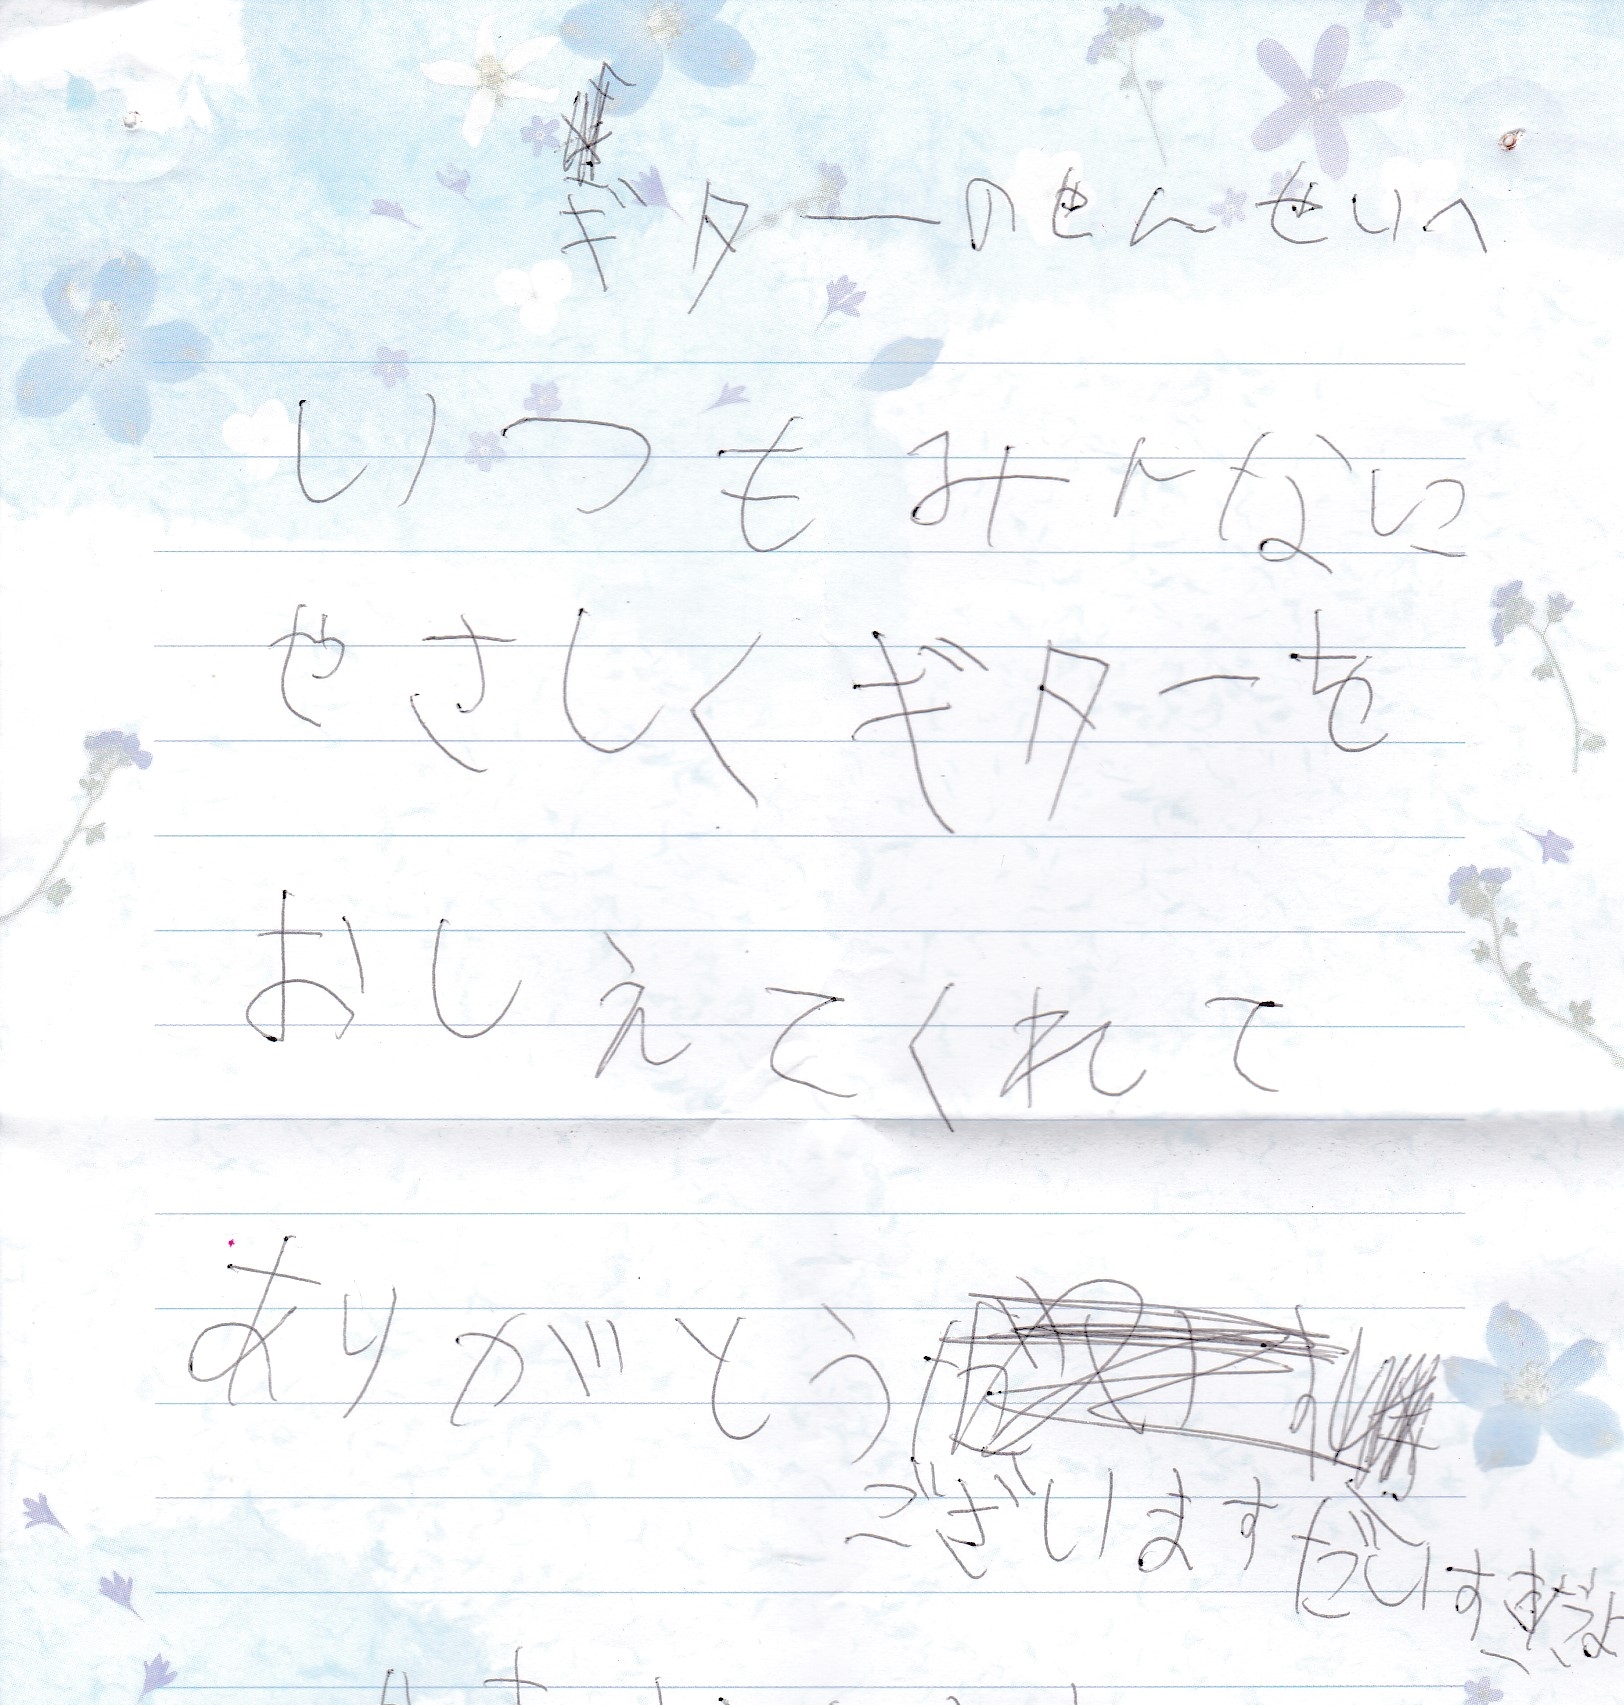 ギターのせんせいへ
いつもみんなに
やさしくギターを
おしえてくれて
ありがとう
ございます だいすきだよ